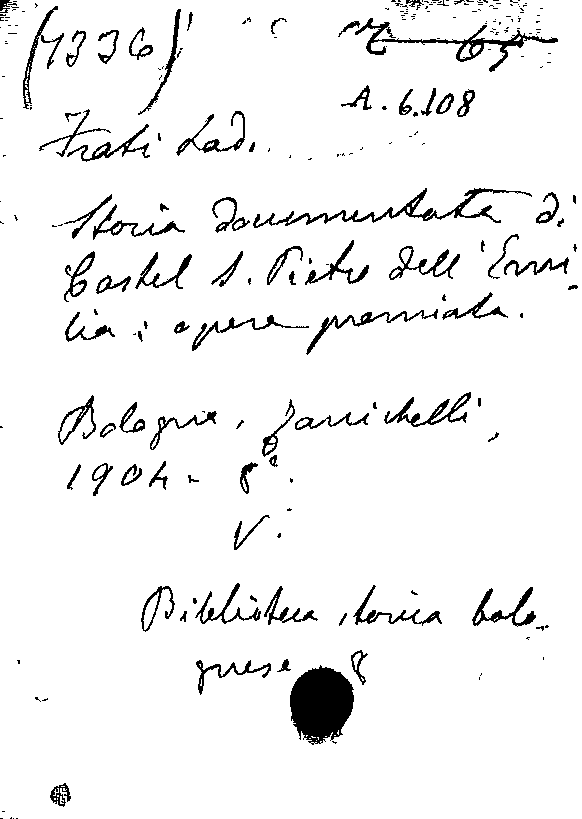 (7336)
A. 6.108
Frati Lod.
Storia documentata di
Castel S. Pietro dell'Emi-
lia; opera premiata.
Bologna, Zanichelli,
1904 - 8°.
V.
Biblioteca storica bolo-
gnese 8